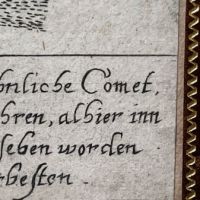 hnliche Comet,
hren, alhier inn
sehen worden
rbesten